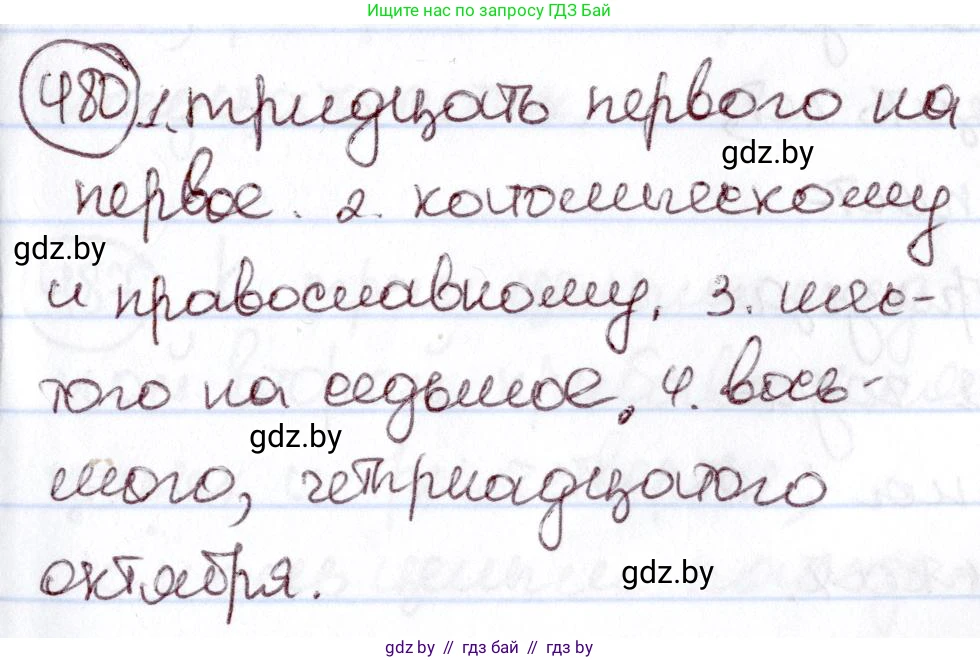 Ищите нас по запросу ГДЗ Бай
480 1. тридцать первого на
gdz.by
первое. 2. католическому
gdz.by
и православному. 3. шес-
того на седьмое. 4. вось-
gdz.by
мого, четрнадцатого
октября.
gdz.by
gdz.by // гдз бай // гдз by